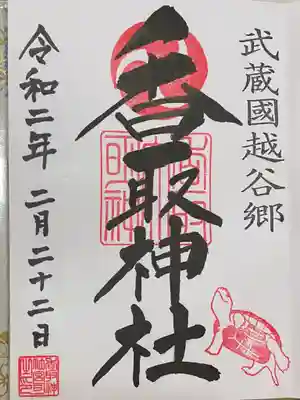 武蔵國越谷郷
香取神社
令和二年 二月二十二日